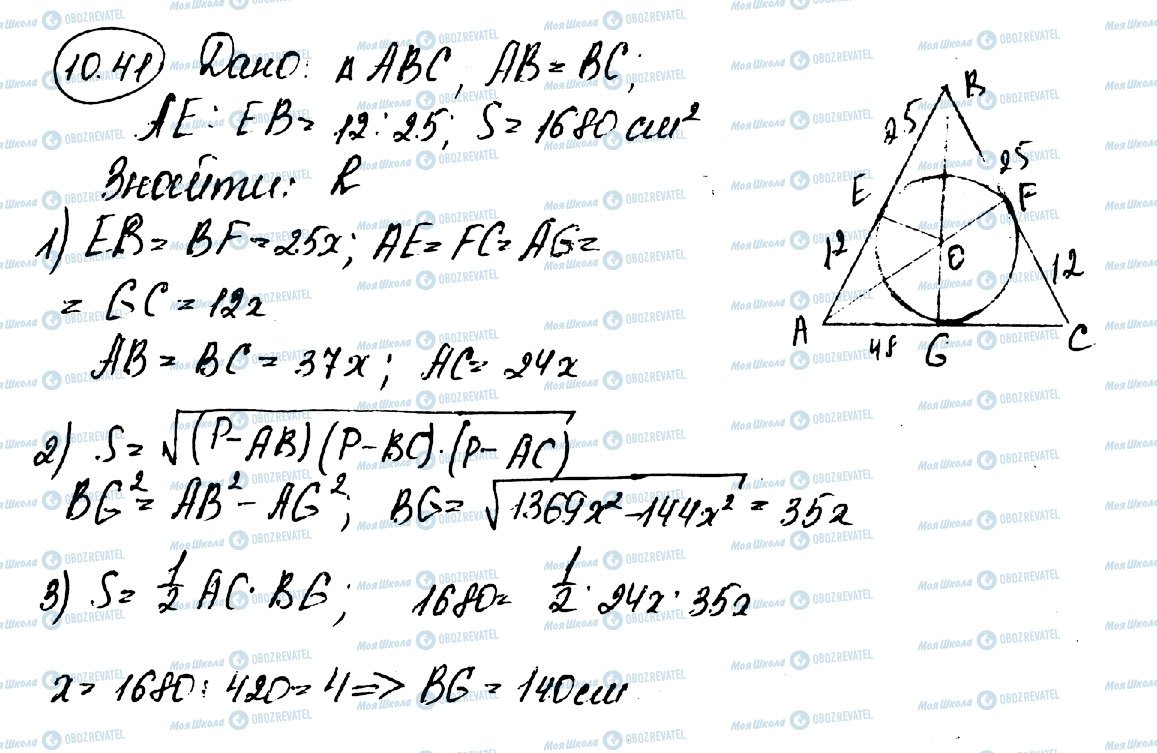 10.41 Дано: △ ABC, AB = BC;
AE : EB = 12 : 25; S = 1680 см²
Знайти: R
1) EB = BF = 25x; AE = FC = AG =
= GC = 12x
AB = BC = 37x; AC = 24x
2) S = √(P - AB)(P - BC)·(P - AC)
BG² = AB² - AG²; BG = √1369x² - 144x² = 35x
3) S = 1/2 AC · BG; 1680 = 1/2 · 24x · 35x
x = 1680 : 420 = 4 => BG = 140 см
B
25
25
E
F
12
O
12
A
48
G
C
Моя Школа OBOZREVATEL